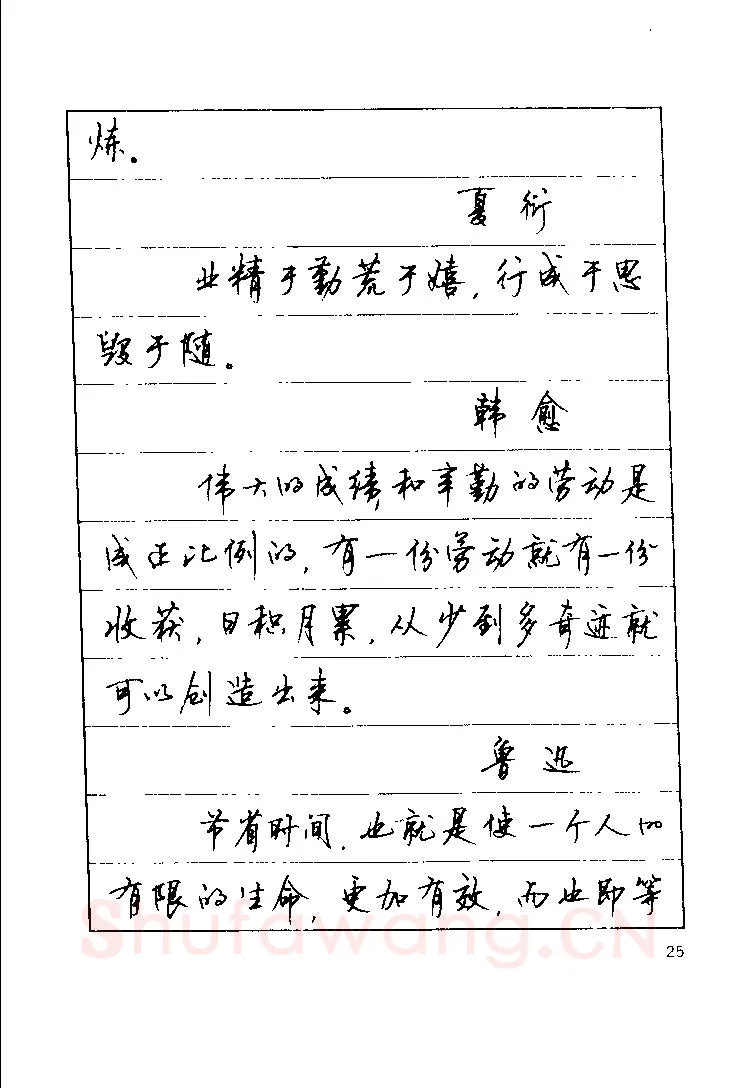 炼。
夏衍
业精于勤荒于嬉，行成于思
毁于随。
韩愈
伟大的成绩和辛勤的劳动是
成正比例的，有一份劳动就有一份
收获，日积月累，从少到多奇迹就
可以创造出来。
鲁迅
节省时间，也就是使一个人的
有限的生命，更加有效，而也即等
Shufawang.CN
25